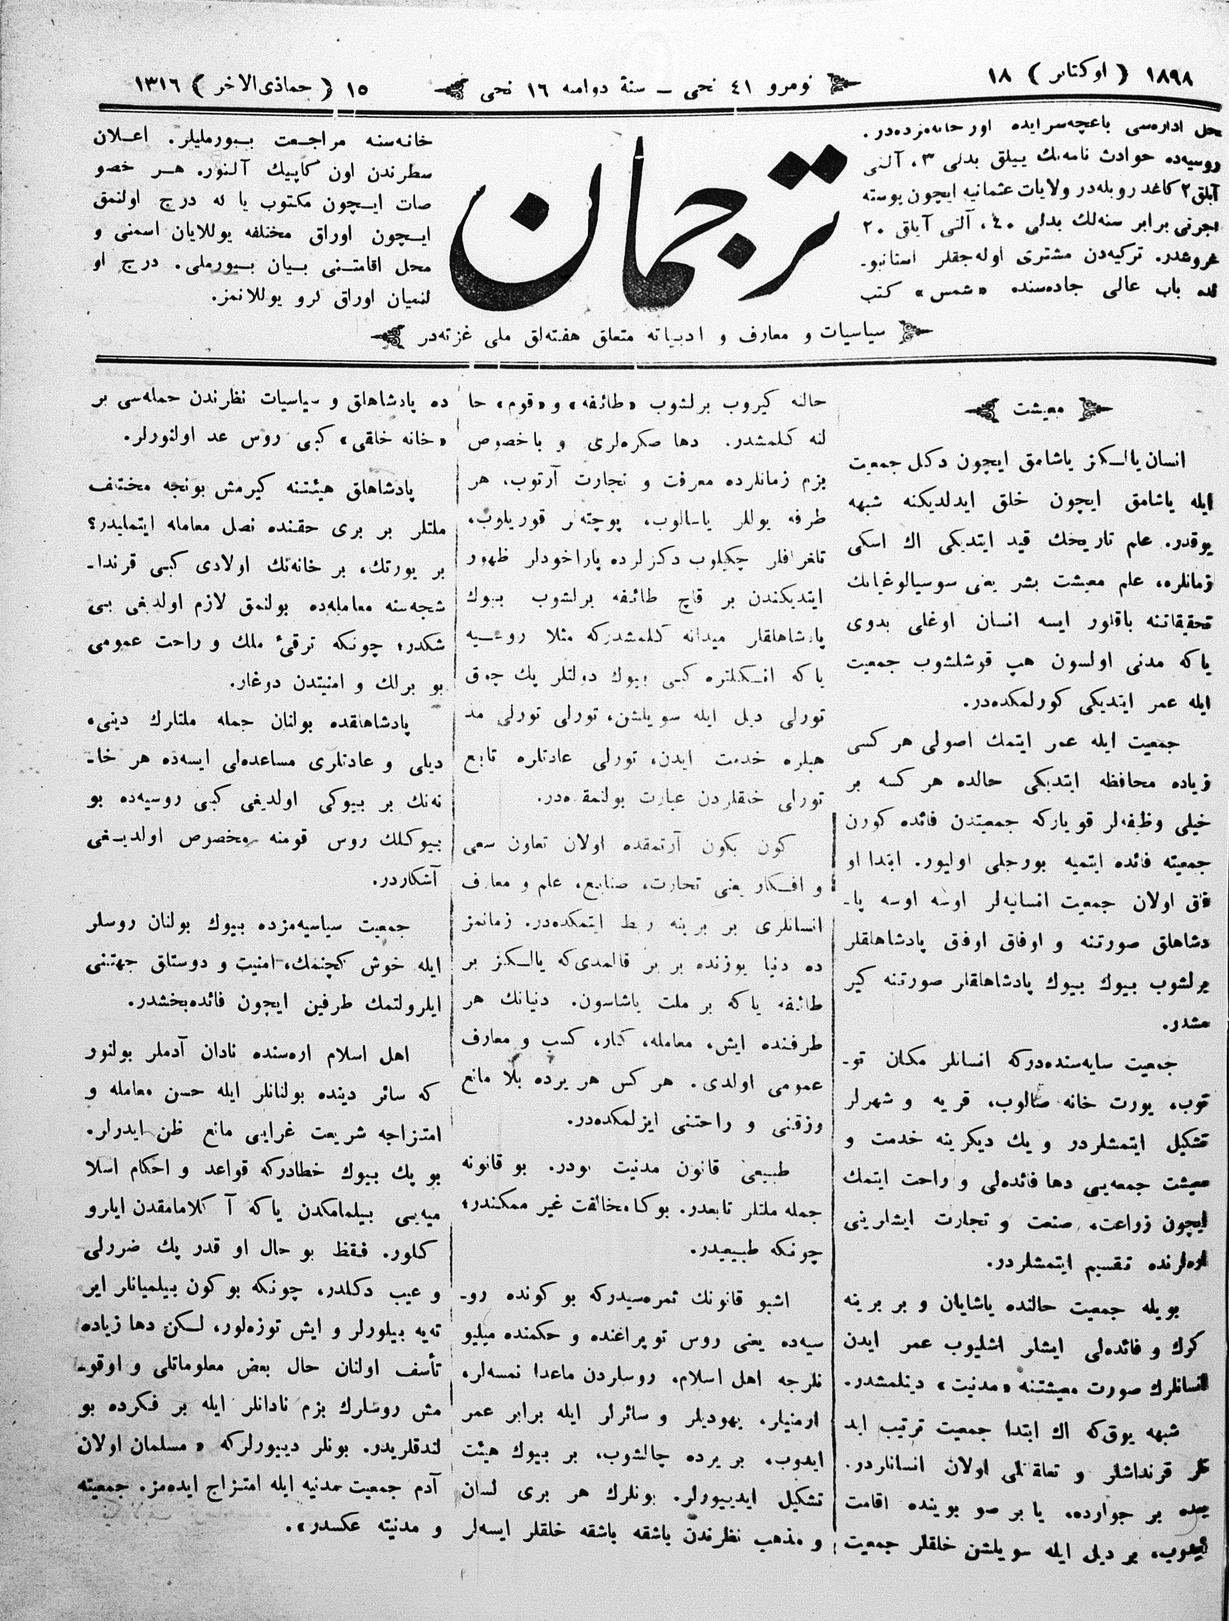 ١٨٩٨ ( اوكتابر ) ١٨
نومرو ٤١ نجى – سنهٔ دواميه ١٦ نجى
١٥ ( جماذى الاخر ) ١٣١٦
محل اداره‌سى باغچه‌سرايده اوز خانه‌مزده‌در.
روسيه‌ده حوادث نامه‌نك ييللق بدلى ٣، آلتى
آيلق ٢ كاغد روبله‌در ولايات عثمانيه ايچون پوسته
اجرتى برابر سنه‌لك بدلى ٤٠، آلتى آيلق ٢٠
غروشدر. تركيه‌دن مشترى اوله‌جقلر استانبو-
لده باب عالى جاده‌سنده «شمس» كتب
ترجمان
خانه‌سنه مراجعت بيورمليلر. اعلان
سطرندن اون كاپيك آلنور. هر خصو
صات ايچون مكتوب يا له درج اولنمق
ايچون اوراق مختلفه يوللايان اسمنى و
محل اقامتنى بيان بيورملى. درج او
لنميان اوراق كرو يوللانمز.
سياسيات و معارف و ادبياته متعلق هفته‌لق ملى غزته‌در
معيشت
انسان يالـكز ياشامق ايچون دكل جمعيت
ايله ياشامق ايچون خلق ايدلديكنه شبهه
يوقدر. علم تاريخك قيد ايتديكى اك اسكى
زمانلره، علم معيشت بشر يعنى سوسيالوغيانك
تحقيقاتنه باقلور ايسه انسان اوغلى بدوى
ياكه مدنى اولسون هپ قوشلشوب جمعيت
ايله عمر ايتديكى كورلمكده‌در.
جمعيت ايله عمر ايتمك اصولى هر كسى
زياده محافظه ايتديكى حالده هر كسه بر
خيلى وظيفه‌لر قوياركه جمعيتدن فائده كورن
جمعيته فائده ايتميه بورجلى اوليور. ابتدا او
فاق اولان جمعيت انسانيه‌لر اوسه اوسه پا-
دشاهلق صورتنه و اوفاق اوفاق پادشاهلقلر
برلشوب بيوك بيوك پادشاهلقلر صورتنه كير
مشدر.
جمعيت سايه‌سنده‌دركه انسانلر مكان تو-
توب، يورت خانه صالوب، قريه و شهرلر
تشكيل ايتمشلردر و يك ديكرينه خدمت و
معيشت جمعه‌يى دها فائده‌لى و راحت ايتمك
ايچون زراعت، صنعت و تجارت ايشلرينى
اره‌لرنده تقسيم ايتمشلردر.
بويله جمعيت حالنده ياشايان و بر برينه
كرك و فائده‌لى ايشلر اشليوب عمر ايدن
انسانلرك صورت معيشتنه «مدنيت» دينلمشدر.
شبهه يوق‌كه اك ابتدا جمعيت ترتيب ايد
نلر قرنداشلر و تعاقلى اولان انسانلردر.
بر جوارده، يا بر صو بوينده اقامت
ايدوب، بر ديل ايله سويلشن خلقلر جمعيت
حالنه كيروب برلشوب «طائفه» و «قوم» حا
لنه كلمشدر. دها صكره‌لرى و باخصوص
بزم زمانلرده معرفت و تجارت آرتوب، هر
طرفه يوللر ياسالوب، پوچته‌لر قوريلوب،
تلغرافلر چكيلوب دكزلرده پاراخودلر ظهور
ايتديكندن بر قاچ طائفه برلشوب بيوك
پادشاهلقلر ميدانه كلمشدركه مثلا روسيه
ياكه انـكلتره كبى بيوك دولتلر پك چوق
تورلى ديل ايله سويلشن، تورلى تورلى مذ
هبلره خدمت ايدن، تورلى عادتلره تابع
تورلى خلقلردن عبارت بولنمقده‌در.
كون بكون آرتمقده اولان تعاون سعى
و افـكار يعنى تجارت، صنايع، علم و معارف
انسانلرى بر برينه ربط ايتمكده‌در. زمانمز
ده دنيا يوزنده بر ير قالمدى‌كه يالـكز بر
طائفه ياكه بر ملت ياشاسون. دنيانك هر
طرفنده ايش، معامله، كار، كسب و معارف
عمومى اولدى. هر كس هر يرده بلا مانع
رزقنى و راحتنى ايزلمكده‌در.
طبيعى قانون مدنيت بودر. بو قانونه
جمله ملتلر تابعدر. بوكا مخالفت غير ممكندر؛
چونكه طبيعيدر.
اشبو قانونك ثمره‌سيدركه بو كونده رو-
سيه‌ده يعنى روس توپراغنده و حكمنده ميليو
نلرجه اهل اسلام، روسلردن ماعدا نمسه‌لر،
ارمنيلر، يهوديلر و سائرلر ايله برابر عمر
ايدوب، بر يرده چالشوب، بر بيوك هيئت
تشكيل ايدييورلر. بونلرك هر برى لسان
و مذهب نظرندن باشقه باشقه خلقلر ايسه‌لر
ده پادشاهلق و سياسيات نظرندن جمله‌سى بر
«خانه خلقى» كبى روس عد اولنورلر.
پادشاهلق هيئتنه كيرمش بونجه مختلف
ملتلر بر برى حقنده نصل معامله ايتمليدر؟
بر يورتك، بر خانه‌نك اولادى كبى قرندا-
شجه‌سنه معامله‌ده بولنمق لازم اولديغى بى
شكدر؛ چونكه ترقئ ملك و راحت عمومى
بو برلك و امنيتدن دوغار.
پادشاهلقده بولنان جمله ملتلرك دينى،
ديلى و عادتلرى مساعده‌لى ايسه‌ده هر خا-
نه‌نك بر بيوكى اولديغى كبى روسيه‌ده بو
بيوكلك روس قومنه مخصوص اولديـغى
آشكاردر.
جمعيت سياسيه‌مزده بيوك بولنان روسلر
ايله خوش كچنمك، امنيت و دوستلق جهتنى
ايلرولتمك طرفين ايچون فائده‌بخشدر.
اهل اسلام اره‌سنده نادان آدملر بولنور
كه سائر دينده بولنانلر ايله حسن معامله و
امتزاجه شريعت غرايى مانع ظن ايدرلر.
بو پك بيوك خطادركه قواعد و احكام اسلا
ميه‌يى بيلمامكدن ياكه آكلامامقدن ايلرو
كلور. فقط بو حال او قدر پك ضررلى
و عيب دكلدر، چونكه بو كون بيلميانلر اير
ته‌يه بيلورلر و ايش توزه‌لور، لـكن دها زياده
تأسف اولنان حال بعض معلوماتلى و اوقو-
مش روسلرك بزم نادانلر ايله بر فـكرده بو
لندقلريدر. بونلر دييورلركه «مسلمان اولان
آدم جمعيت مدنيه ايله امتزاج ايده‌مز. جمعيته
و مدنيته عكسدر».